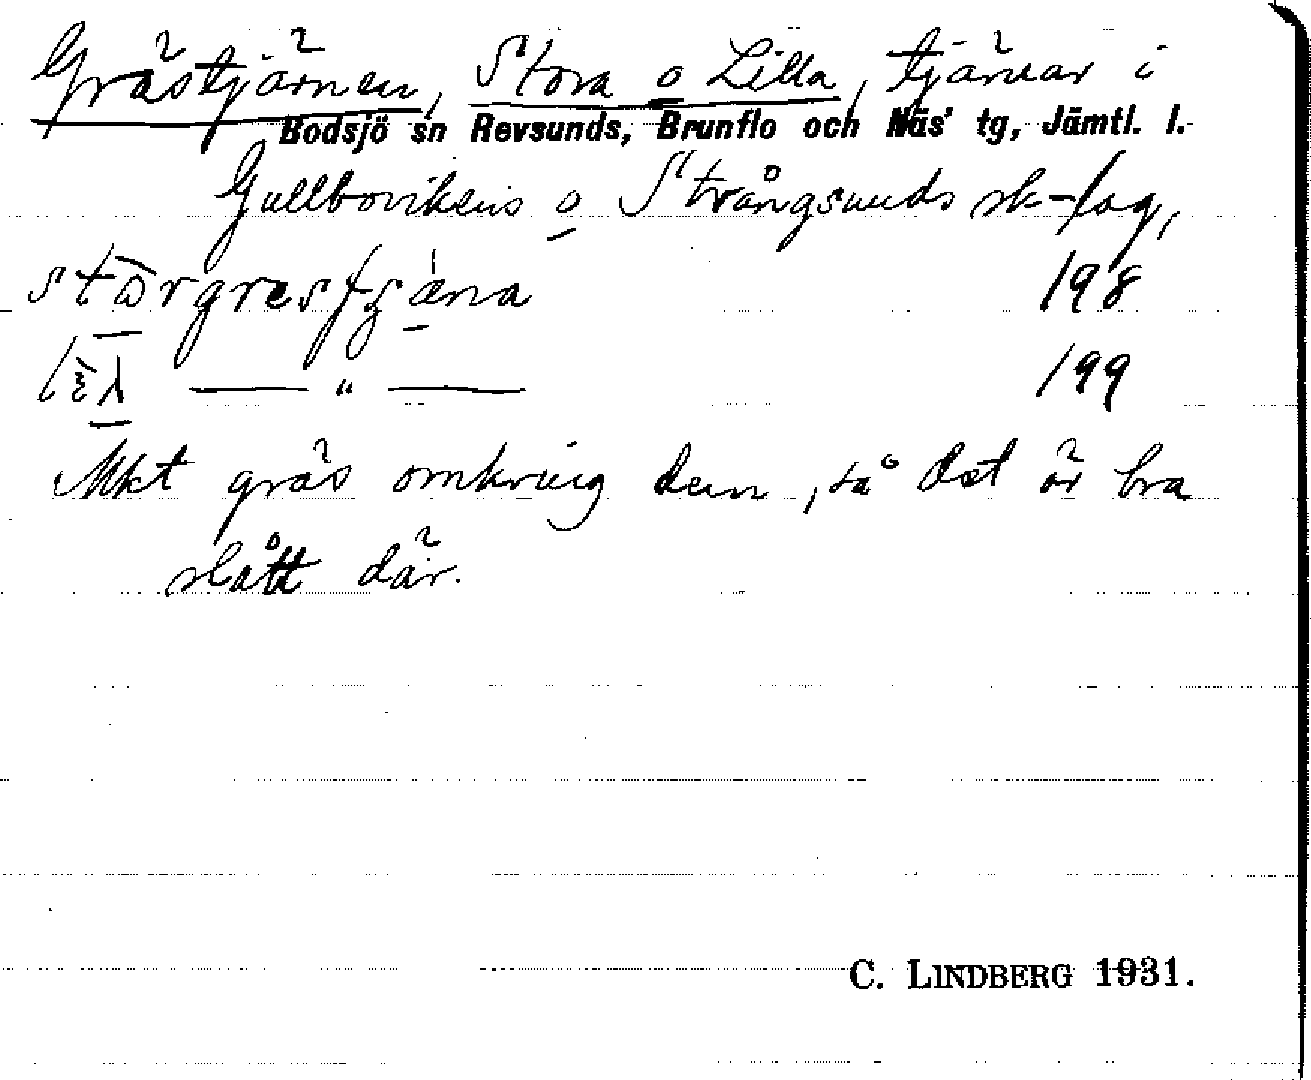 Grästjärnen, Stora o Lilla, tjärnar i
Bodsjö sn Revsunds, Brunflo och Näs' tg, Jämtl. l.
Gullbovikens o Strångsunds sk-lag,
198
— " — 199
Mkt gräs omkring dem, så det är bra
slått där.
C. LINDBERG 1931.